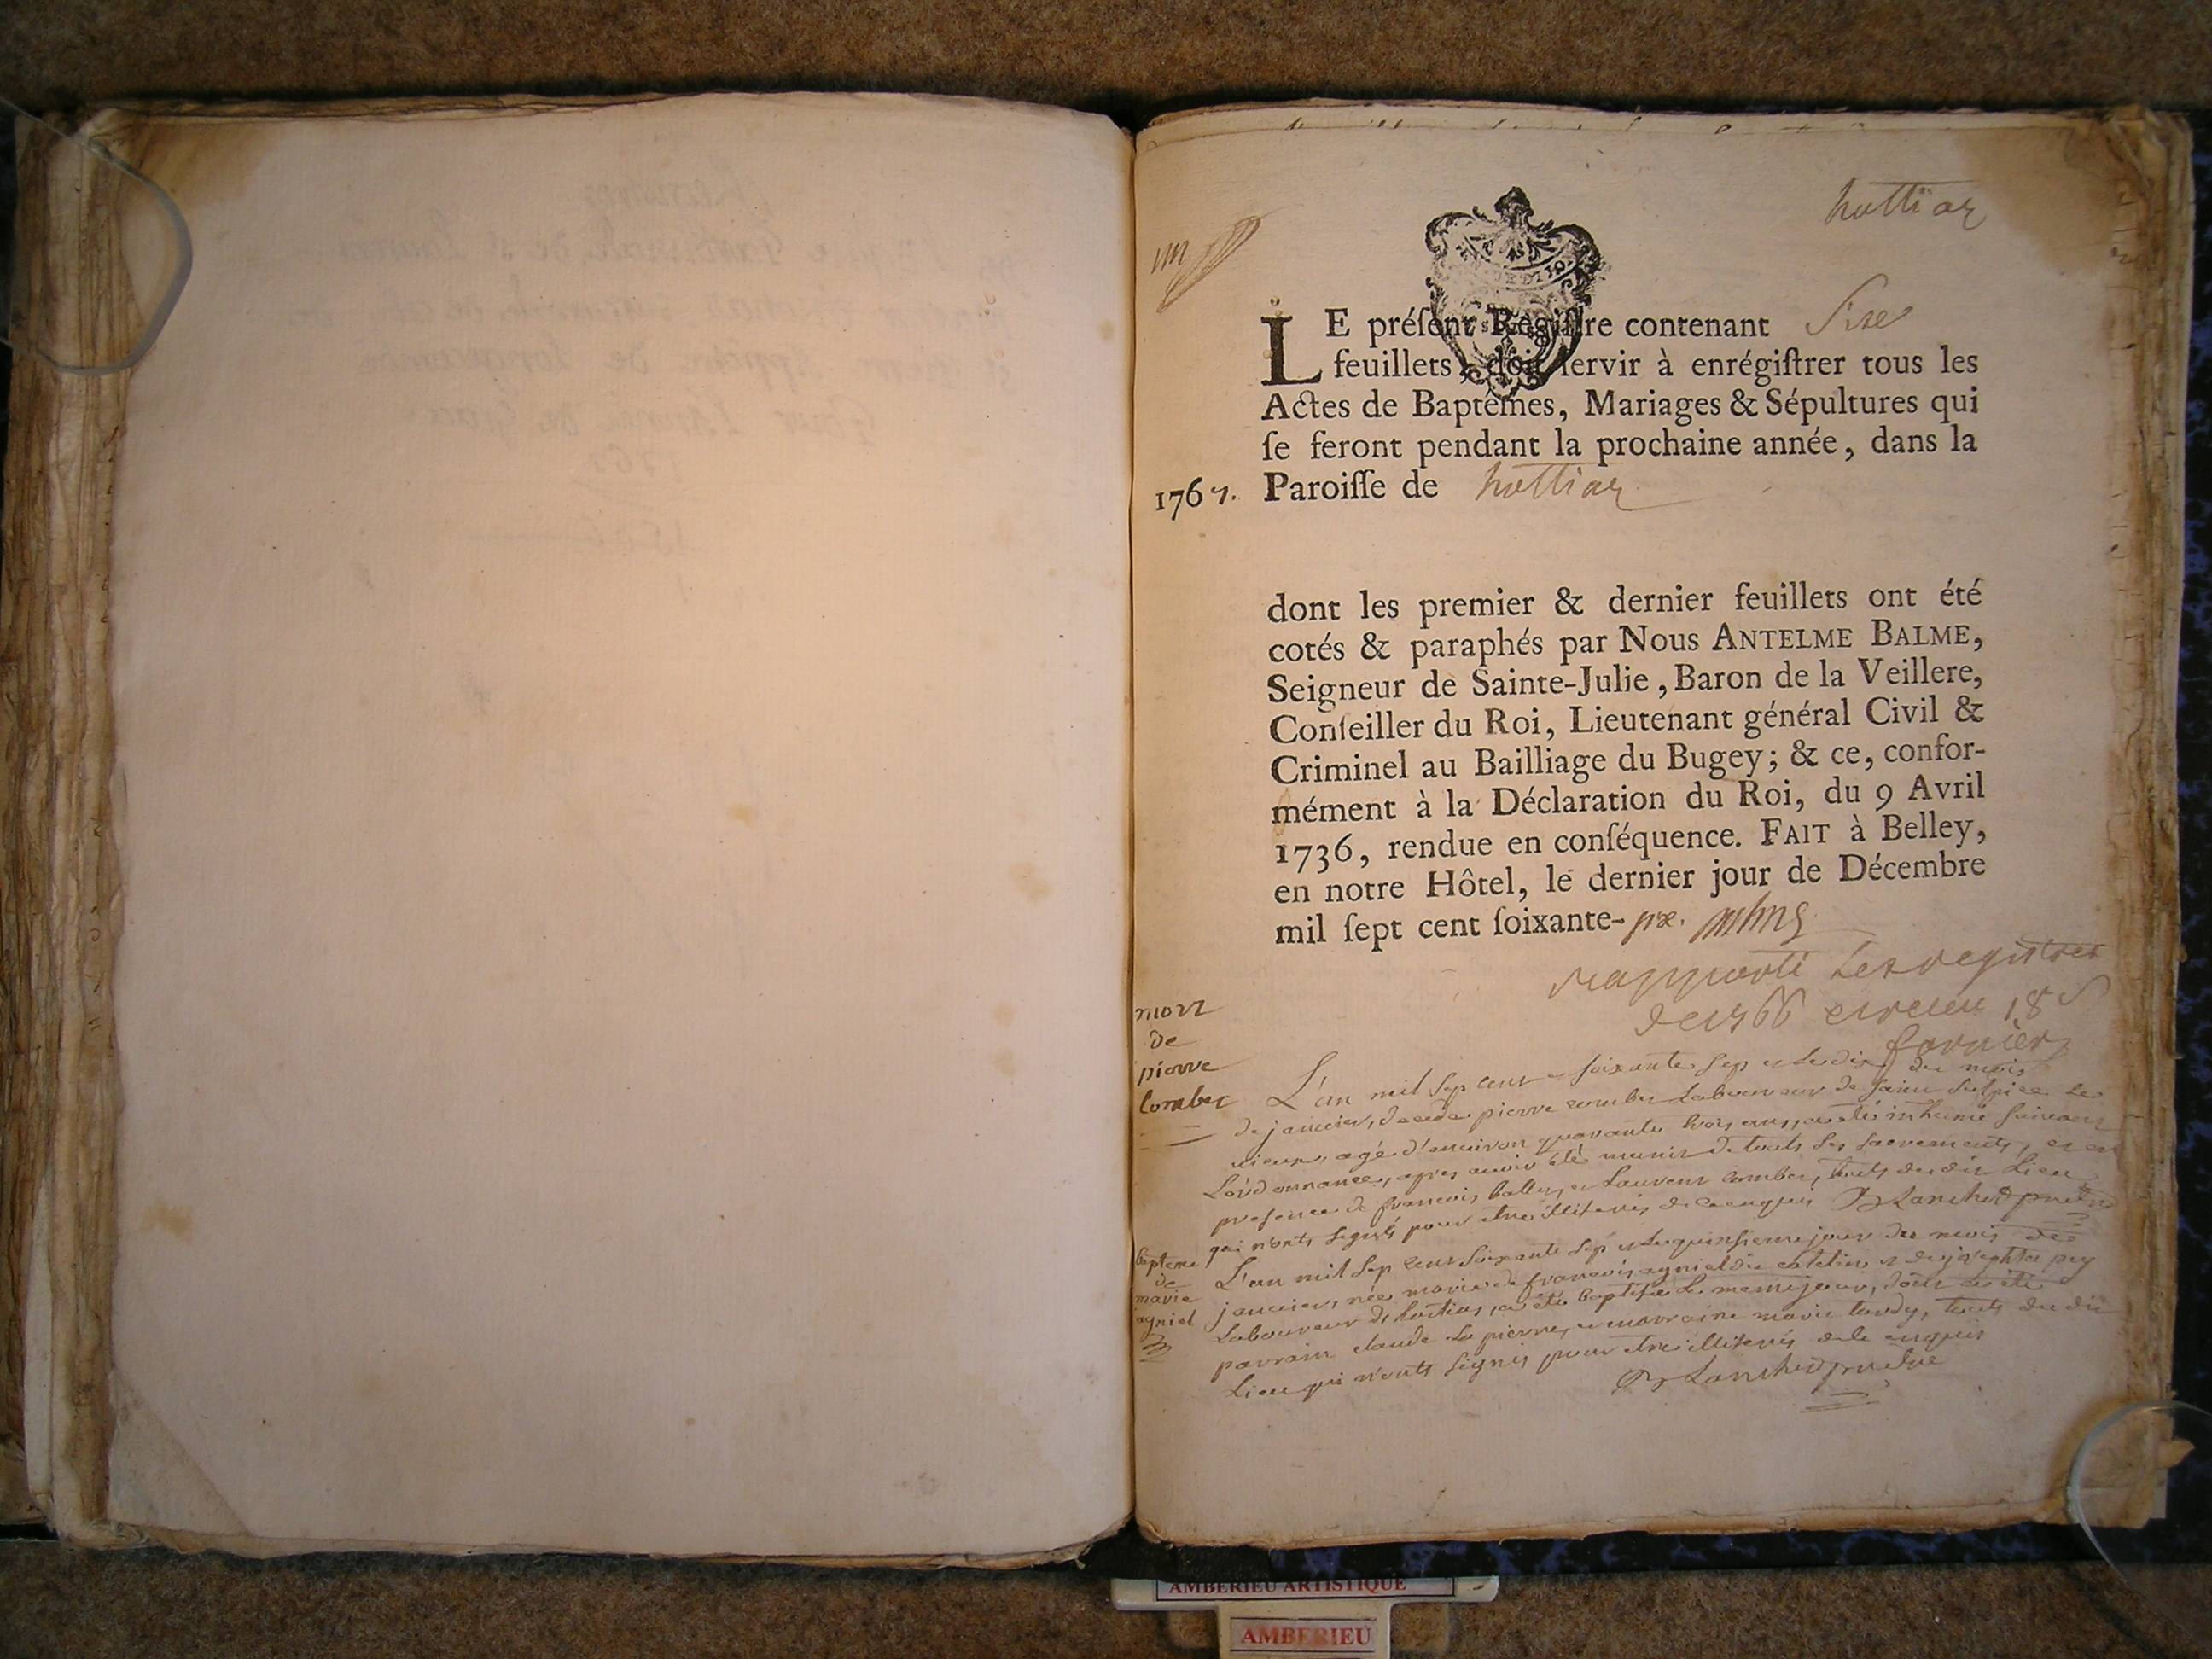 hottiar
un
LE préſent Regiſtre contenant Sixe
feuillets, doit ſervir à enrégiſtrer tous les
Actes de Baptêmes, Mariages & Sépultures qui
ſe feront pendant la prochaine année, dans la
1767. Paroiſſe de hottiar
dont les premier & dernier feuillets ont été
cotés & paraphés par Nous ANTELME BALME,
Seigneur de Sainte-Julie, Baron de la Veillere,
Conſeiller du Roi, Lieutenant général Civil &
Criminel au Bailliage du Bugey; & ce, confor-
mément à la Déclaration du Roi, du 9 Avril
1736, rendue en conſéquence. FAIT à Belley,
en notre Hôtel, le dernier jour de Décembre
mil ſept cent ſoixante-six.
rapporté les registres
de 1766 18
fevrier
mort
de
pierre
combet
L'an mil sep cent soixante sep et le dix du mois
de janvier, decede pierre combet Laboureur de saint sulpice le
vieux, agé d'environ quarante trois ans, a été inhumé suivant
L'ordonnance, apres avoir été munis de touts les sacrements, et en
presence de francois ballet, et Laurent combet, touts du dit Lieu
qui n'onts signés pour etre illiterés de ce enquis Blanchet pretre
bapteme
de
marie
agniel
L'an mil sep cent soixante sep et le quinsieme jour du mois de
janvier, née marie de francois agniel dit catelin et de
Laboureur de hostias, a été baptisée le meme jour, dont a été
parrain claude la pierre, et marraine marie tardy, touts du dit
Lieu qui n'onts signés pour etre illiterés de ce enquis
Blanchet pretre
AMBERIEU ARTISTIQUE
AMBERIEU